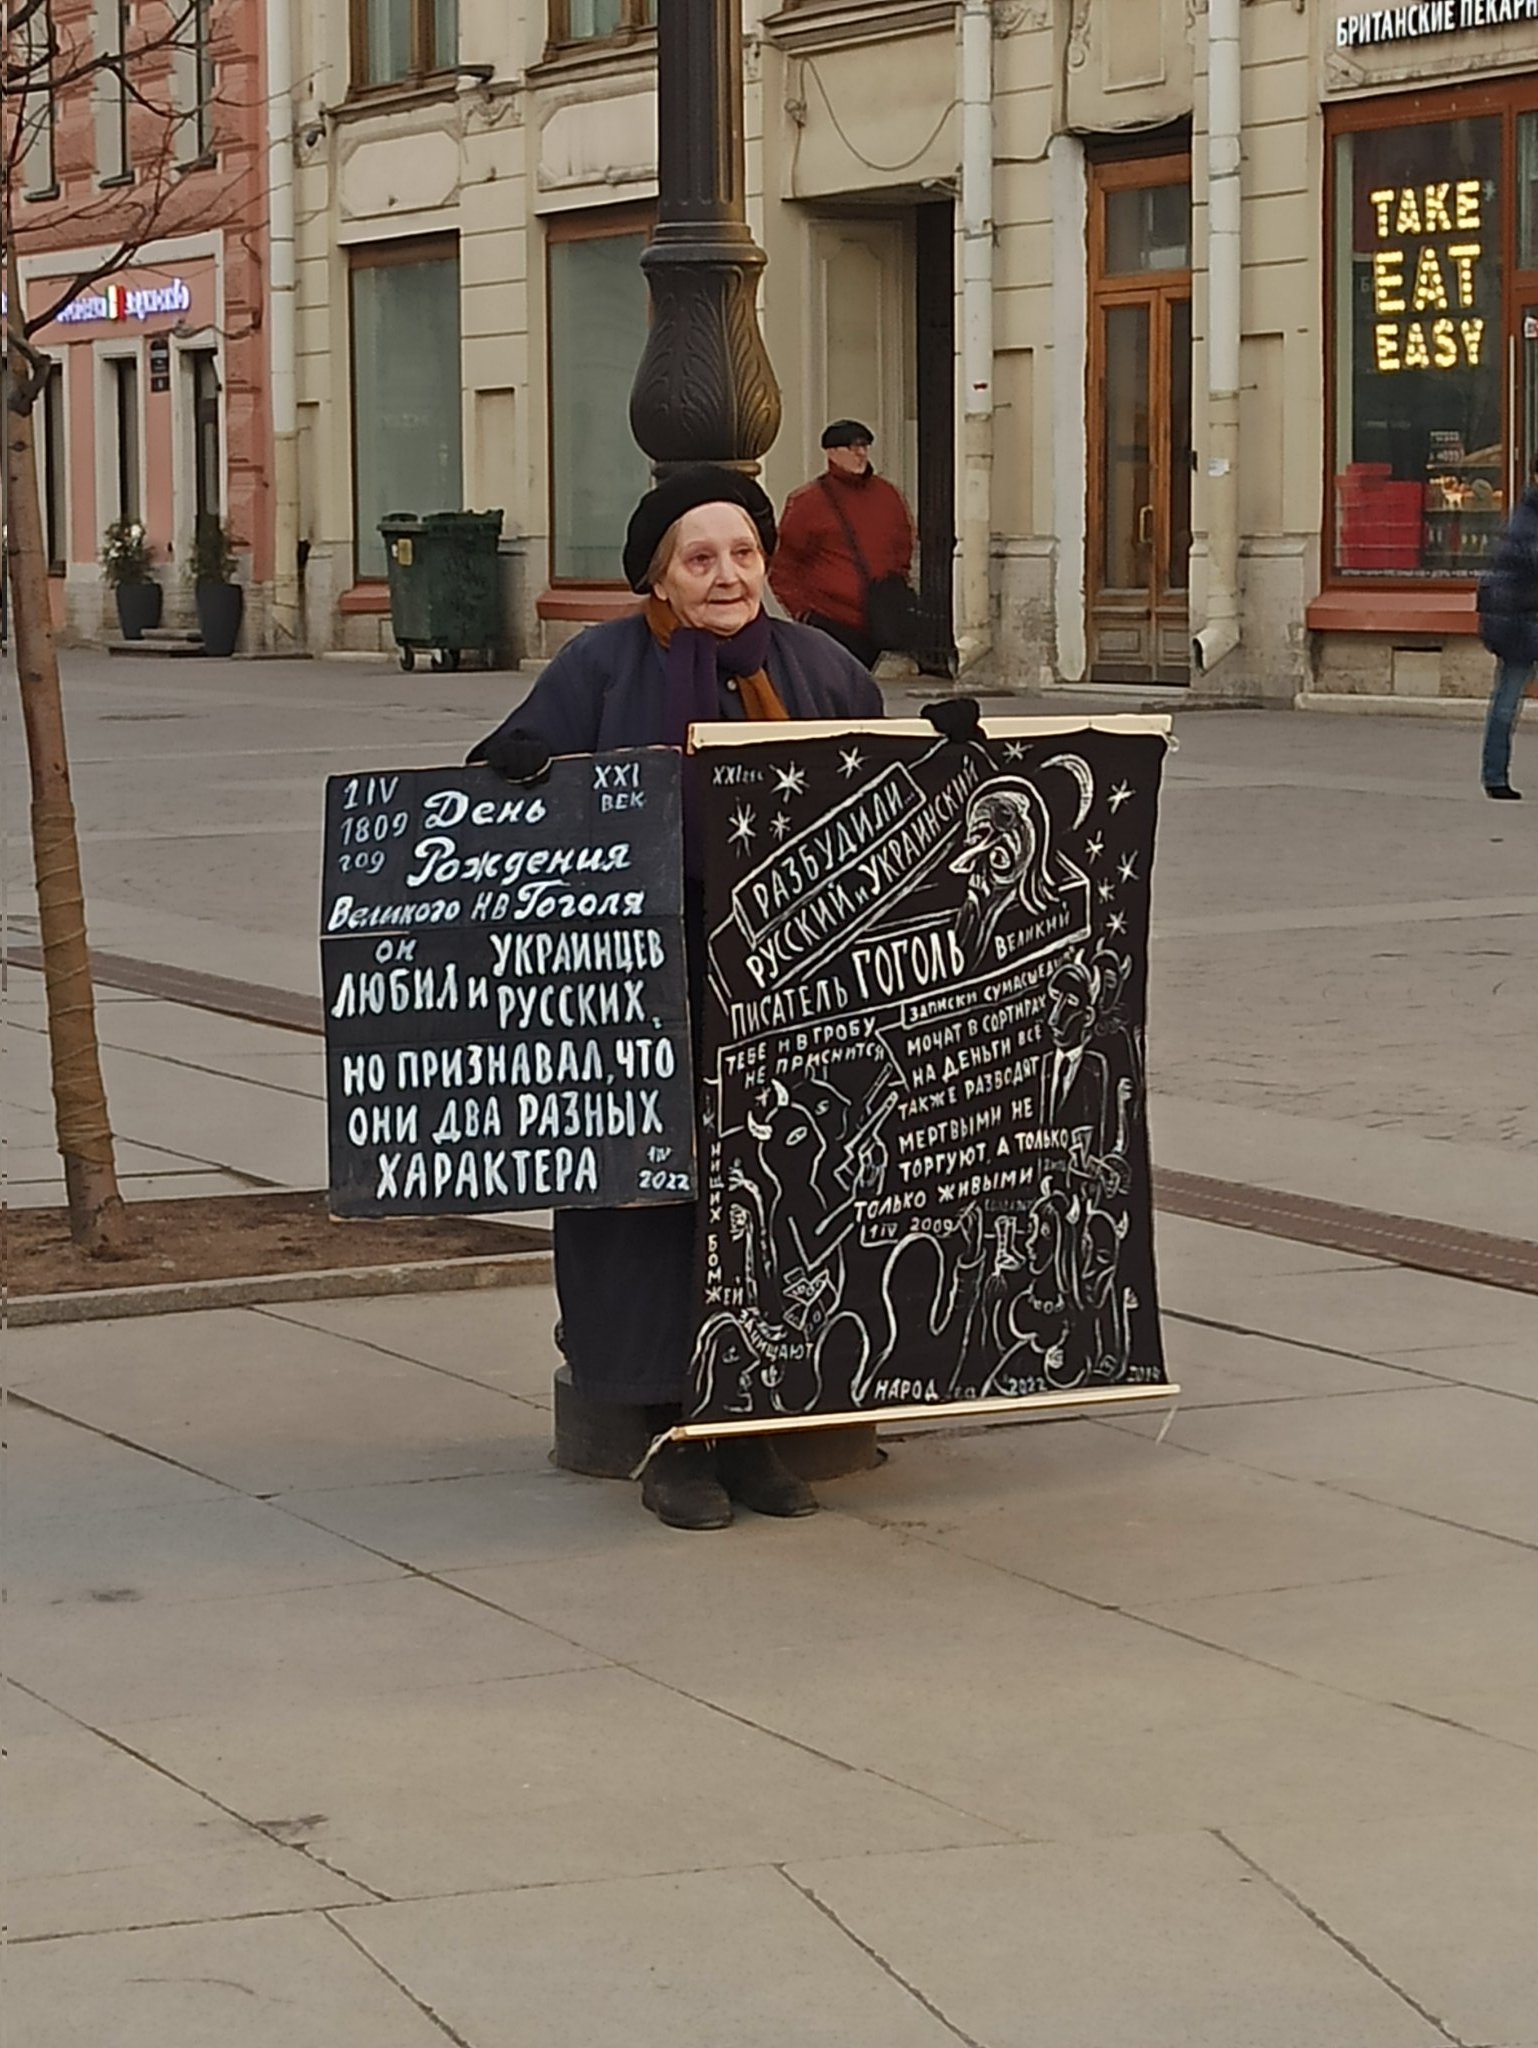 БРИТАНСКИЕ ПЕКАРН
TAKE
EAT
EASY
1 IV
1809
год
XXI
ВЕК
День
Рождения
Великого НВ Гоголя
он
ЛЮБИЛ и
УКРАИНЦЕВ
РУССКИХ.
НО ПРИЗНАВАЛ, ЧТО
ОНИ ДВА РАЗНЫХ
ХАРАКТЕРА
1 IV
2022
XXI век
РАЗБУДИЛИ...
РУССКИЙ и УКРАИНСКИЙ
ПИСАТЕЛЬ ГОГОЛЬ ВЕЛИКИЙ
ЗАПИСКИ СУМАСШЕДШ
ТЕБЕ И В ГРОБУ
НЕ ПРИСНИТСЯ
МОЧАТ В СОРТИРАХ
НА ДЕНЬГИ ВСЕ
ТАКЖЕ РАЗВОДЯТ
МЕРТВЫМИ НЕ
ТОРГУЮТ, А ТОЛЬКО
ТОЛЬКО ЖИВЫМИ
1 IV 2009
НИЩИХ
БОМЖЕЙ
ЗАЧИЩАЮТ
НАРОД
2022